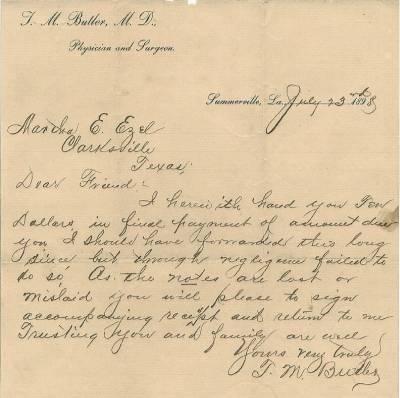 T. M. Butler, M. D.,
Physician and Surgeon.
Summerville, La. July 23rd 1898
Martha E. Ezel
Clarksville
Texas;
Dear Friend:-
I herewith hand you Ten
Dollars in final payment of amount due
you I should have forwarded this long
since but through negligence failed to
do so, As the notes are lost or
mislaid you will please to sign
accompanying receipt and return to me
Trusting you and family are well
Yours very truly
T. M. Butler